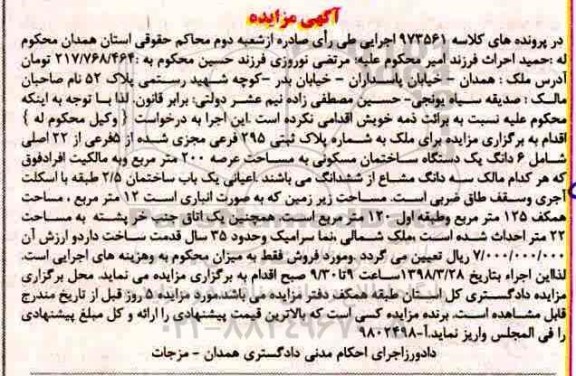 آگهی مزایده
در پرونده های کلاسه ۹۷۳۵۶۱ اجرایی طی رأی صادره ازشعبه دوم محاکم حقوقی استان همدان محکوم
له :حمید احراث فرزند امیر محکوم علیه: مرتضی نوروزی فرزند حسین محکوم به :۲۱۷/۷۶۸/۴۶۴ تومان
آدرس ملک : همدان - خیابان پاسداران - خیابان بدر -کوچه شهید رستمی پلاک ۵۲ نام صاحبان
مالک : صدیقه سیاه یونجی- حسین مصطفی زاده نیم عشر دولتی: برابر قانون، لذا با توجه به اینکه
محکوم علیه نسبت به برائت ذمه خویش اقدامی نکرده است .این اجرا به درخواست { وکیل محکوم له }
اقدام به برگزاری مزایده برای ملک به شماره پلاک ثبتی ۲۹۵ فرعی مجزی شده از ۵فرعی از ۲۲ اصلی
شامل ۶ دانگ یک دستگاه ساختمان مسکونی به مساحت عرصه ۲۰۰ متر مربع وبه مالکیت افرادفوق
که هر کدام مالک سه دانگ مشاع از ششدانگ می باشند .اعیانی یک باب ساختمان ۲/۵ طبقه با اسکلت
آجری وسقف طاق ضربی است. مساحت زیر زمین که به صورت انباری است ۱۲ متر مربع ، مساحت
همکف ۱۲۵ متر مربع وطبقه اول ۱۲۰ متر مربع است. همچنین یک اتاق جنب خر پشته به مساحت
۲۲ متر احداث شده است ،ملک شمالی ،نما سرامیک وحدود ۳۵ سال قدمت ساخت داردو ارزش آن
۷/۰۰۰/۰۰۰/۰۰۰ ریال تعیین می گردد .ومورد فروش فقط به میزان محکوم به وهزینه های اجرایی است.
لذااین اجراء بتاریخ ۱۳۹۸/۳/۲۸ساعت ۹تا۹/۳۰ صبح اقدام به برگزاری مزایده می نماید. محل برگزاری
مزایده دادگستری کل استان طبقه همکف دفتر مزایده می باشد.مورد مزایده ۵ روز قبل از تاریخ مندرج
قابل مشاهده است. برنده مزایده کسی است که بالاترین قیمت پیشنهادی را ارائه و کل مبلغ پیشنهادی
را فی المجلس واریز نماید.آ-۹۸۰۲۴۹۸
دادورزاجرای احکام مدنی دادگستری همدان - مزجات